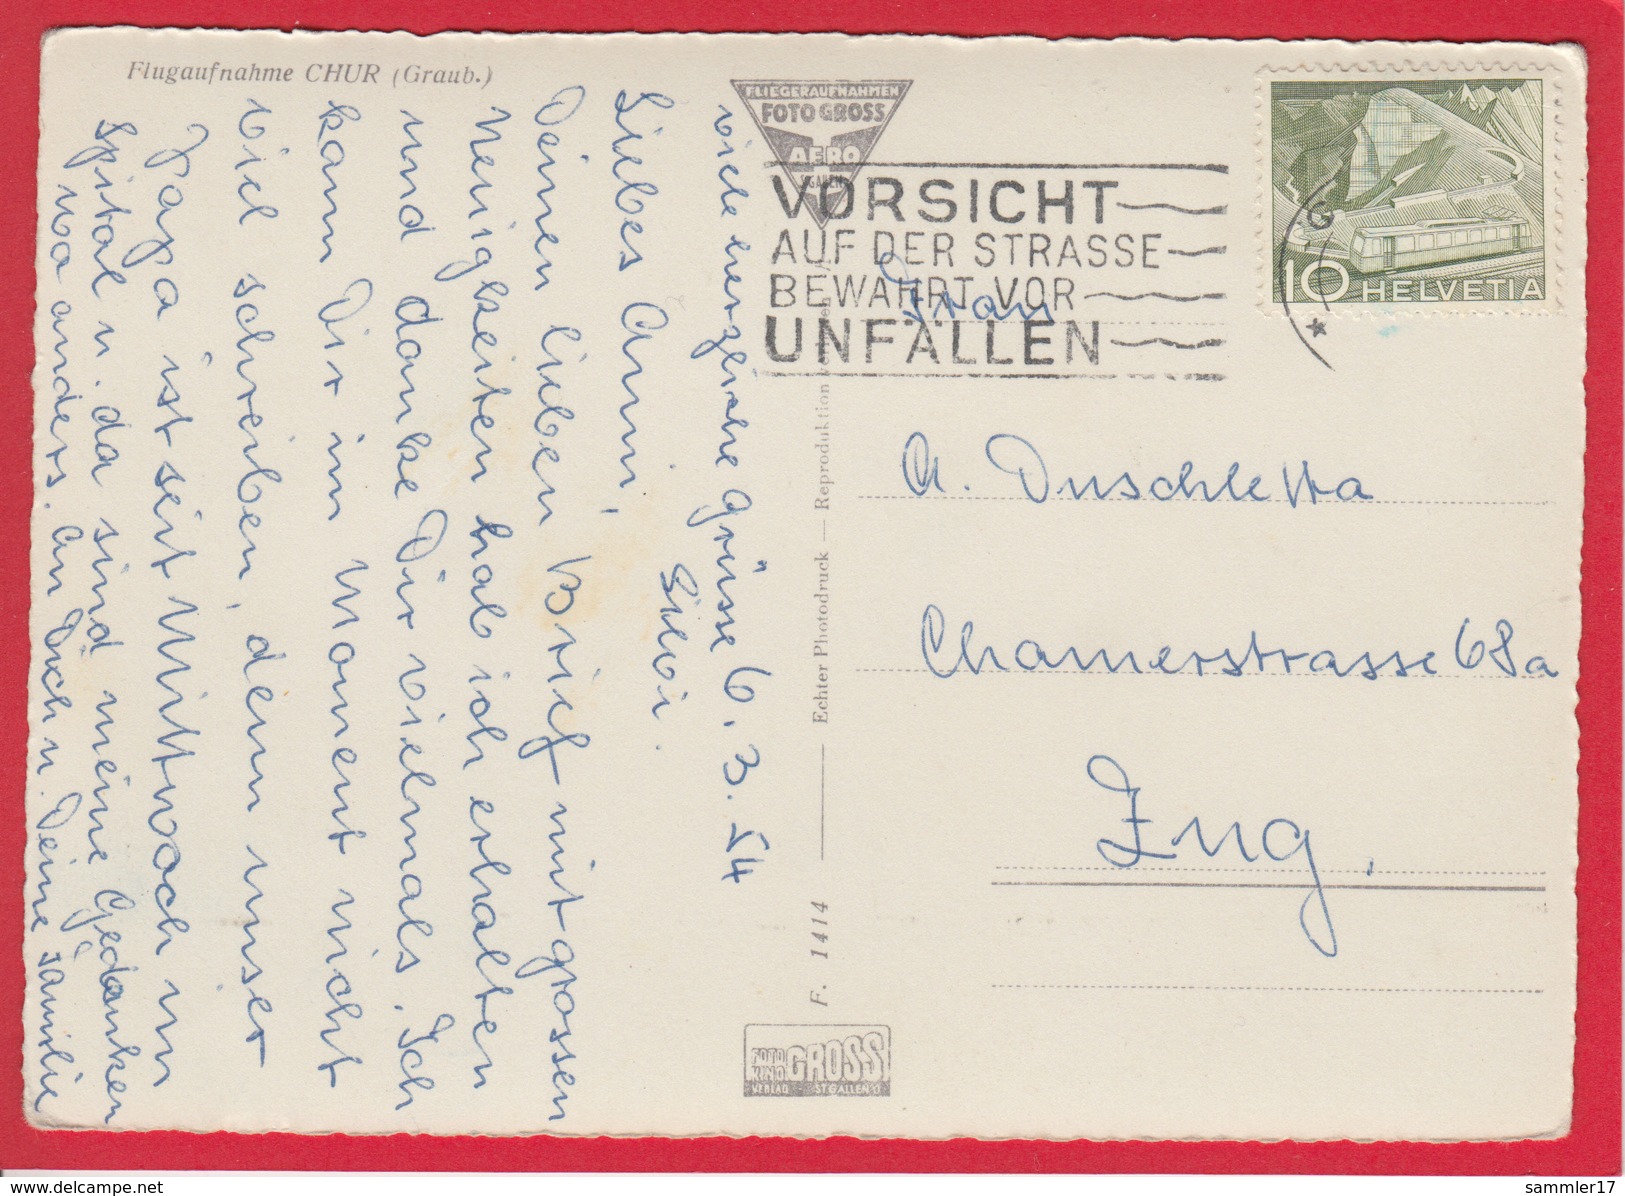 Flugaufnahme CHUR (Graub.)
FLIEGERAUFNAHMEN
FOTO GROSS
AERO
ST. GALLEN
VORSICHT
AUF DER STRASSE
BEWAHRT VOR
UNFÄLLEN
10 HELVETIA
Frau
A. Duschletta
Chamerstrasse 68a
Zug.
6. 3. 54
Liebes Anni,
Deinen lieben Brief mit grossen
Neuigkeiten hab ich erhalten
und danke Dir vielmals. Ich
kann Dir im Moment nicht
viel schreiben, denn unser
Papa ist seit Mittwoch im
Spital u. da sind meine Gedanken
wo anders. An Dich u. Deine Familie
viele herzliche Grüsse
Silvi.
Echter Photodruck — Reproduktion
F. 1414
FOTO
KINO
GROSS
VERLAG - ST. GALLEN O.
delcampe.net
sammler17